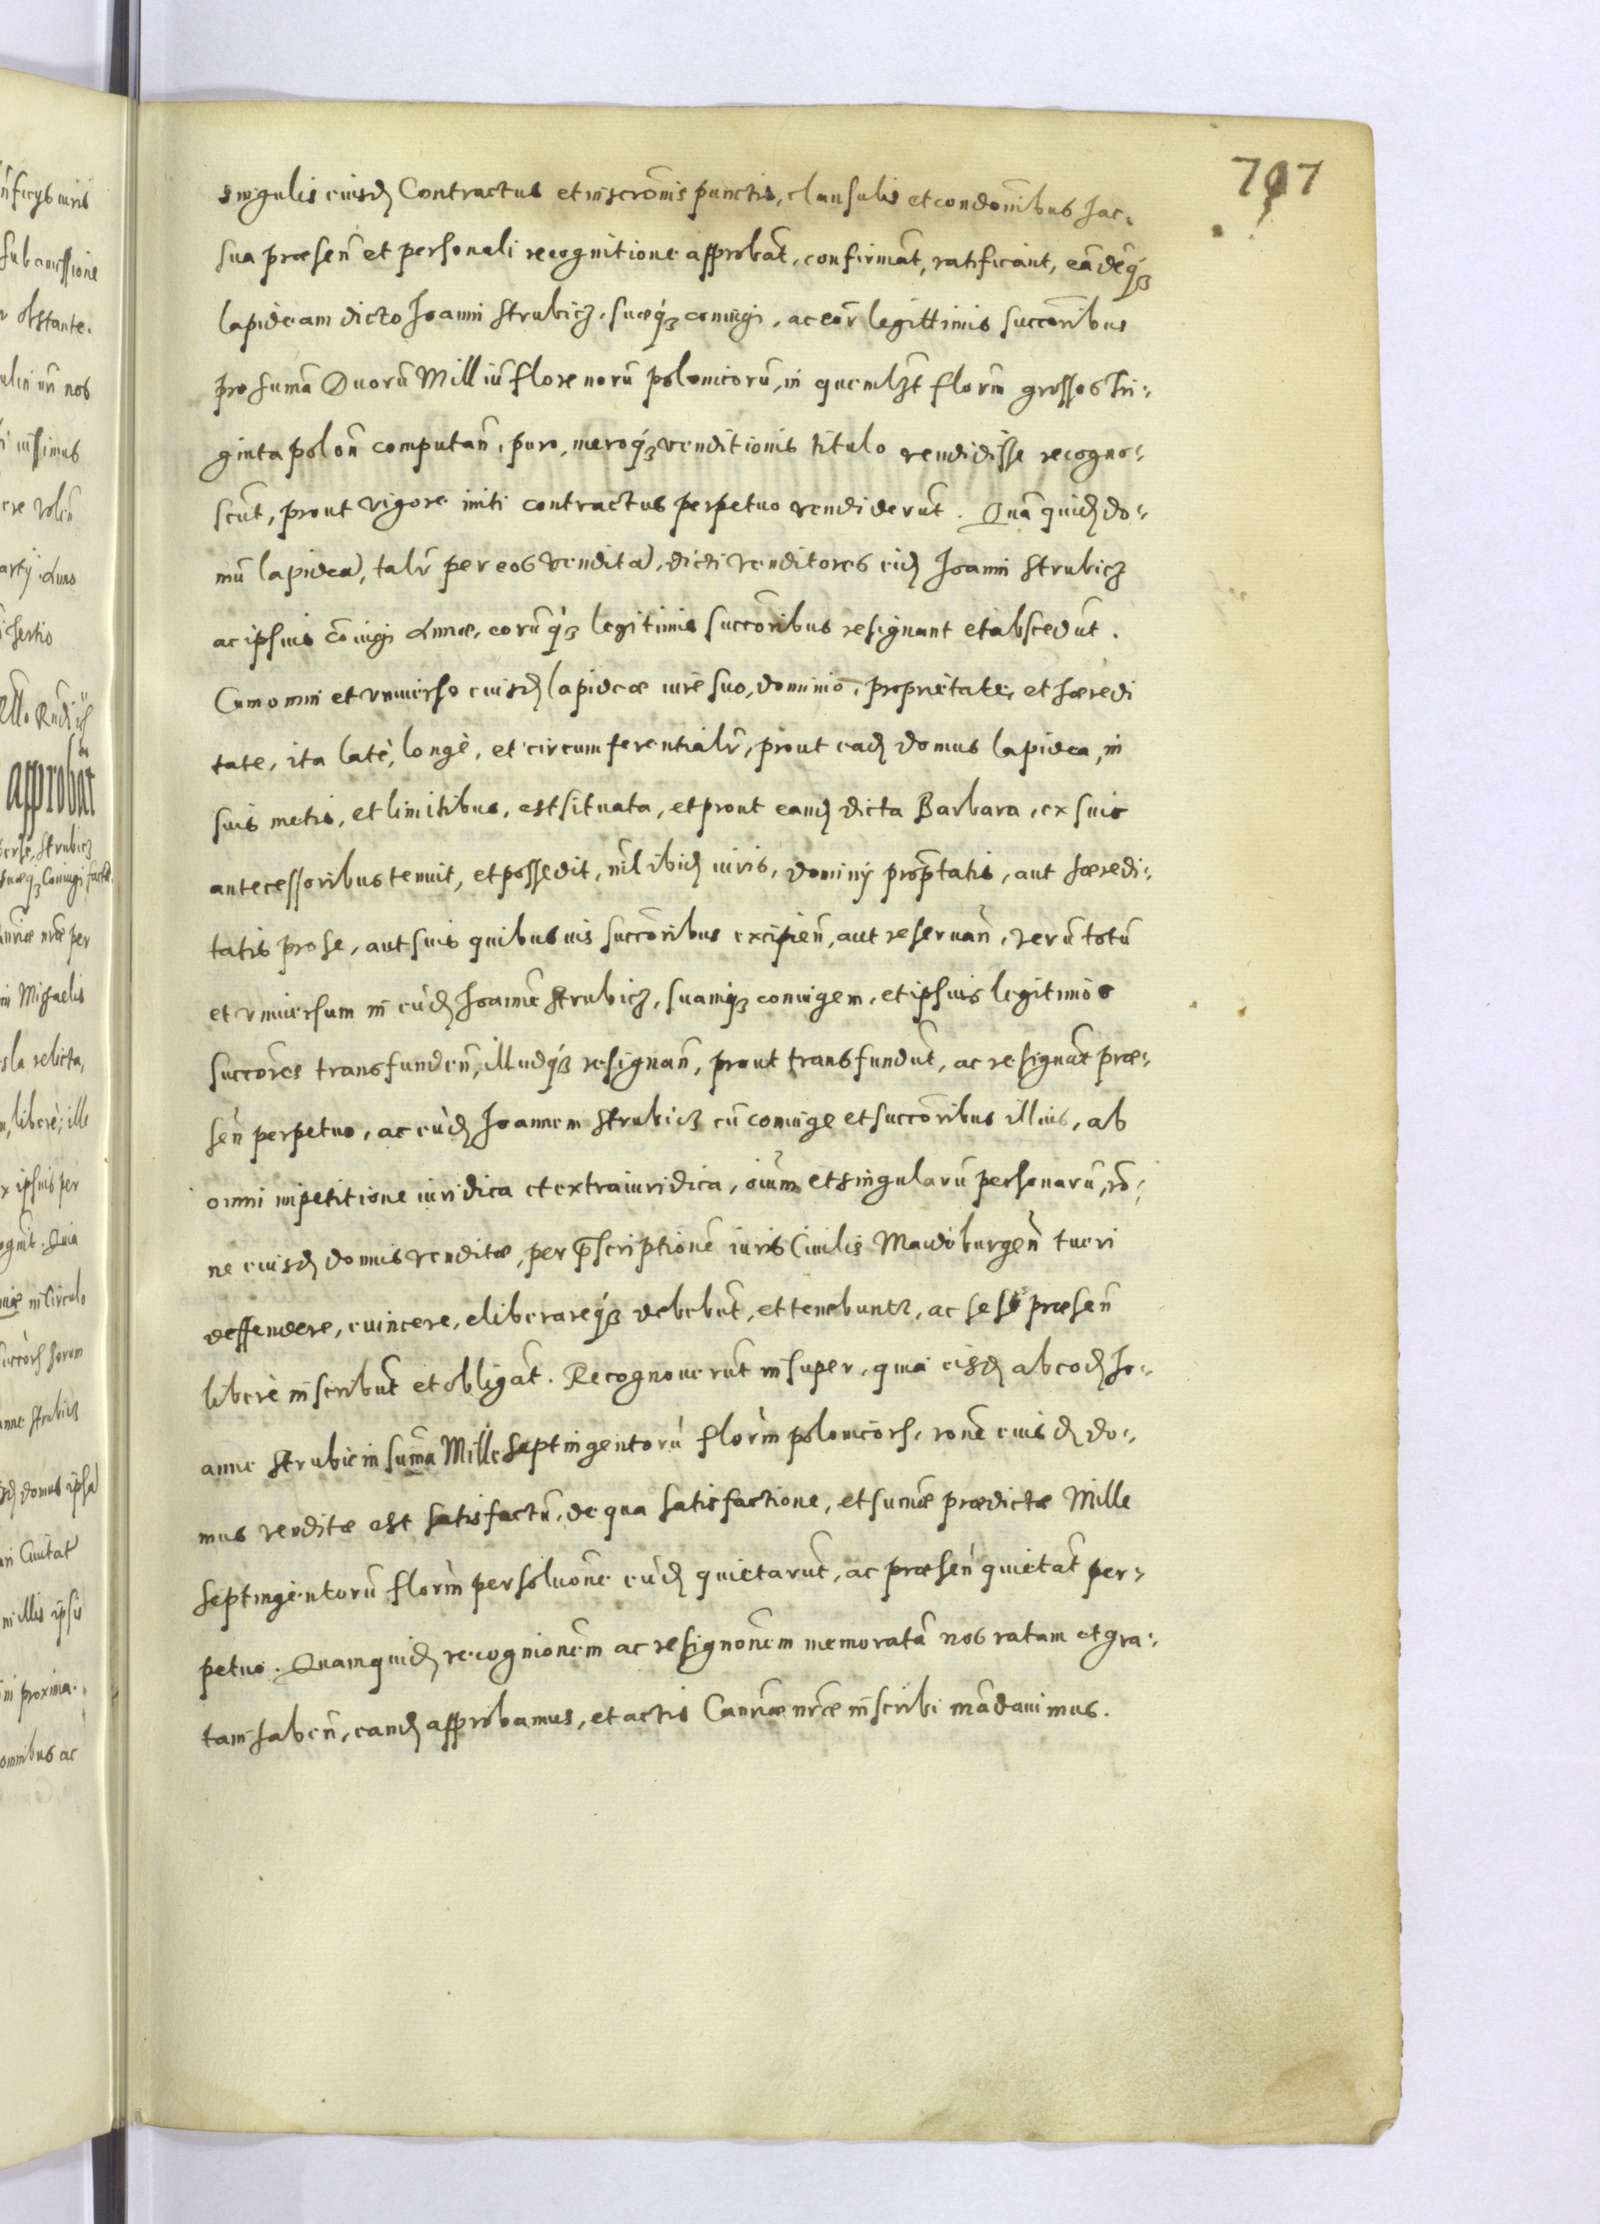 707
singulis eiusd Contractus et inscronis punctis, clausulis et condonibus hac
sua præsen et personali recognitione approbāt, confirmāt, ratificant, eādēq3
lapideam dicto Ioanni Strubicz, suæq3 coniugi, ac eor legittimis succoribus
pro sumā Duorū Milliū florenorū polonicorū, in quemlzt florīn grossos tri-
ginta polon computan, puro, meroq3 venditionis titulo vendidisse recogno-
scūt, prout vigore initi contractus perpetuo vendiderūt. Quā quid do-
mū lapideā, talr per eos venditā, dicti venditores eid Ioanni Strubicz
ac ipsius cōiugi Annæ, eorūq3 legitimis succoribus resignant et abscedūt.
Cum omni et vniuerso eiusd lapideæ iure suo, dominio, proprietate, et hæredi
tate, ita latè, longè, et circumferentialr, prout ead domus lapidea, in
suis metis, et limitibus, est situata, et prout eand dicta Barbara, ex suis
antecessoribus tenuit, et possedit, nīl ibid iuris, dominy proptatis, aut hæredi-
tatis pro se, aut suis quibusuis succoribus excipien, aut reseruan, verū totū
et vniuersum in eūd Ioannē Strubicz, suamq3 coniugem, et ipsius legitimos
succores transfunden, illudq3 resignan, prout transfundūt, ac resignāt præ-
sen perpetuo, ac eūd Ioannem Strubicz cū coniuge et succoribus illius, ab
omni impetitione iuridica et extraiuridica, oium et singularū personarū, ro-
ne eiusd domus venditæ, per pscriptionē iuris Ciuilis Maideburgen tueri
deffendere, euincere, eliberareq3 debebūt, et tenebuntr, ac sese præsen
liberè inscribūt et obligāt. Recognouerūt insuper, quia eisd ab eod Io-
anne Strubic in sumā Mille septingentorū florīn polonicor, rone eiusd do-
mus venditæ est satisfactū, de qua satisfactione, et sumæ prædictæ Mille
septingentorū florīn persoluone eūd quietarūt, ac præsen quietāt per-
petuo. Quamquid recognionem ac resignonem memoratā nos ratam et gra-
tam haben, eand approbamus, et actis Canriæ nræ inscribi mādauimus.